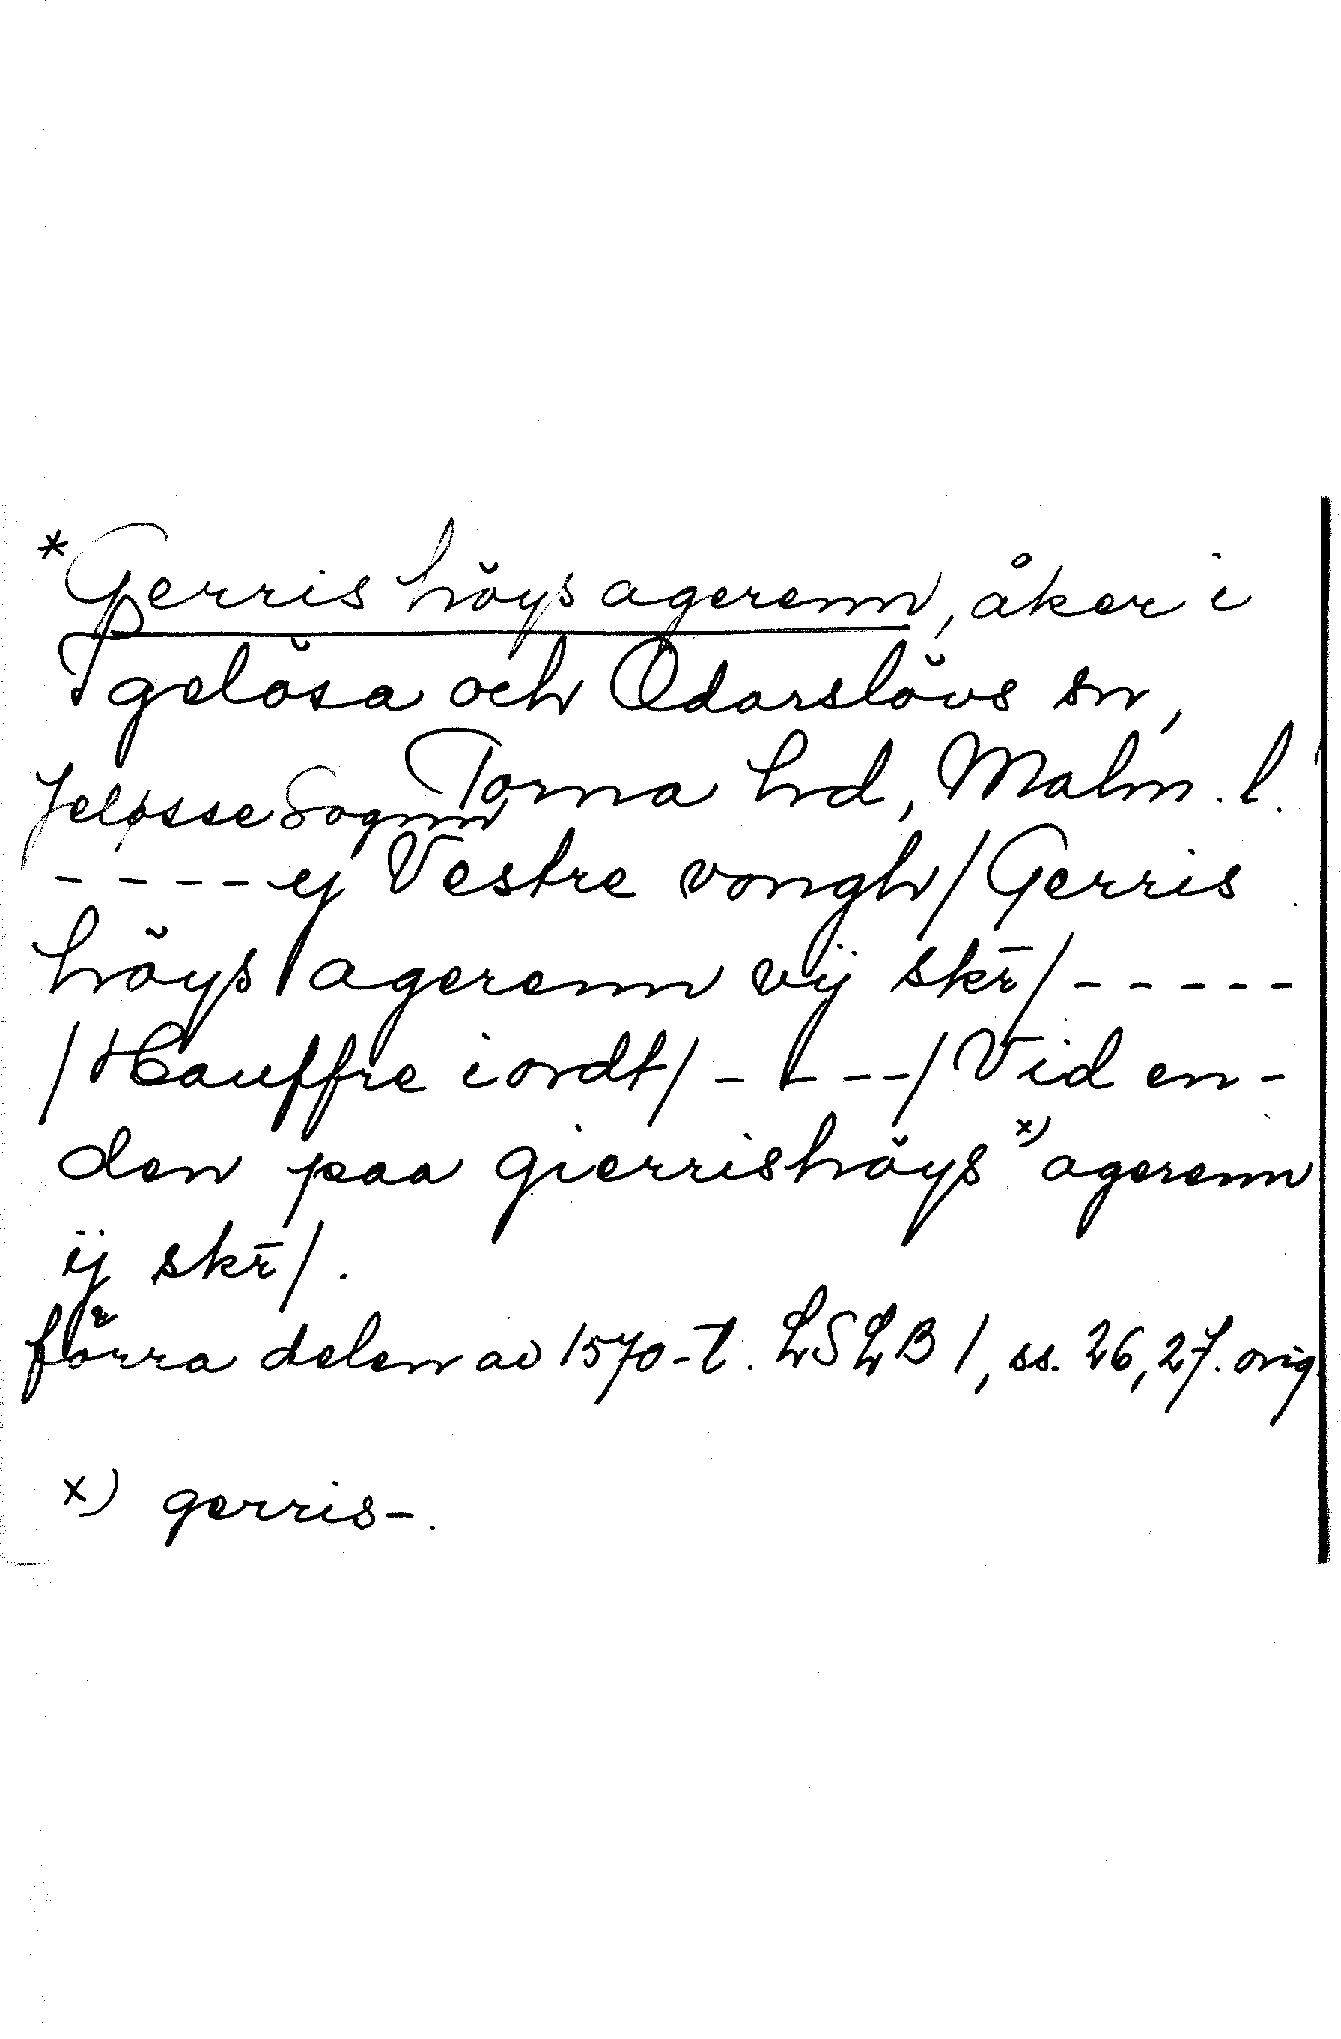 *Gerris höys agerenn, åker i
Igelösa och Odarslövs sn,
Torna hd, Malm. l.
Jeløsse Sognn
----ij Vestre vongh/Gerris
höys agerenn vij skr̄/-----
/Hauffre iordt/----/Vid en-
den paa gierrishöys x) agerenn
ij skr̄/.
förra delen av 1570-t. LSLB 1, ss. 26, 27. orig.
x) gerris-.